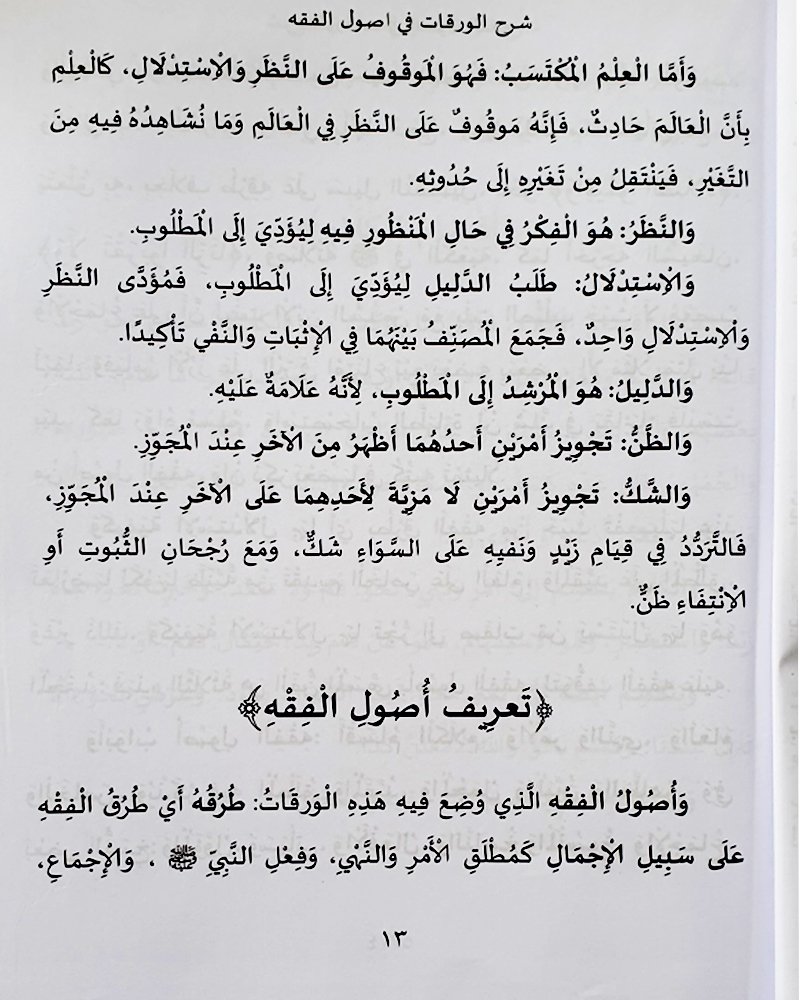 شرح الورقات في اصول الفقه
وَأَمَّا الْعِلْمُ الْمُكْتَسَبُ: فَهُوَ الْمَوقُوفُ عَلَى النَّظَرِ وَالْاِسْتِدْلَالِ، كَالْعِلْمِ
بِأَنَّ الْعَالَمَ حَادِثٌ، فَإِنَّهُ مَوقُوفٌ عَلَى النَّظَرِ فِي الْعَالَمِ وَمَا نُشَاهِدُهُ فِيهِ مِنَ
التَّغَيْرِ، فَيَنْتَقِلُ مِنْ تَغَيْرِهِ إِلَى حُدُوثِهِ.
وَالنَّظَرُ: هُوَ الْفِكْرُ فِي حَالِ الْمَنْظُورِ فِيهِ لِيُؤَدِّيَ إِلَى الْمَطْلُوبِ.
وَالْاِسْتِدْلَالُ: طَلَبُ الدَّلِيلِ لِيُؤَدِّيَ إِلَى الْمَطْلُوبِ، فَمُؤَدَّى النَّظَرِ
وَالْاِسْتِدْلَالِ وَاحِدٌ، فَجَمَعَ الْمُصَنِّفُ بَيْنَهُمَا فِي الْإِثْبَاتِ وَالنَّفْيِ تَأْكِيدًا.
وَالدَّلِيلُ: هُوَ الْمُرْشِدُ إِلَى الْمَطْلُوبِ، لِأَنَّهُ عَلَامَةٌ عَلَيْهِ.
وَالظَّنُّ: تَجْوِيزُ أَمْرَيْنِ أَحدُهُمَا أَظْهَرُ مِنَ الْآخَرِ عِنْدَ الْمُجَوِّزِ.
وَالشَّكُّ: تَجْوِيزُ أَمْرَيْنِ لَا مَزِيَّةَ لِأَحَدِهِمَا عَلَى الْآخَرِ عِنْدَ الْمُجَوِّزِ،
فَالتَّرَدُّدُ فِي قِيَامِ زَيْدٍ وَنَفيِهِ عَلَى السَّوَاءِ شَكٌّ، وَمَعَ رُجْحَانِ الثُّبُوتِ أَوِ
الْاِنْتِفَاءِ ظَنٌّ.
﴿تَعرِيفُ أُصُولِ الْفِقْهِ﴾
وَأُصُولُ الْفِقْهِ الَّذِي وُضِعَ فِيهِ هَذِهِ الْوَرَقَاتُ: طُرُقُهُ أَيْ طُرُقُ الْفِقْهِ
عَلَى سَبِيلِ الْإِجْمَالِ كَمُطْلَقِ الْأَمْرِ وَالنَّهْيِ، وَفِعْلِ النَّبِيِ ﷺ ، وَالْإِجْمَاعِ،
١٣